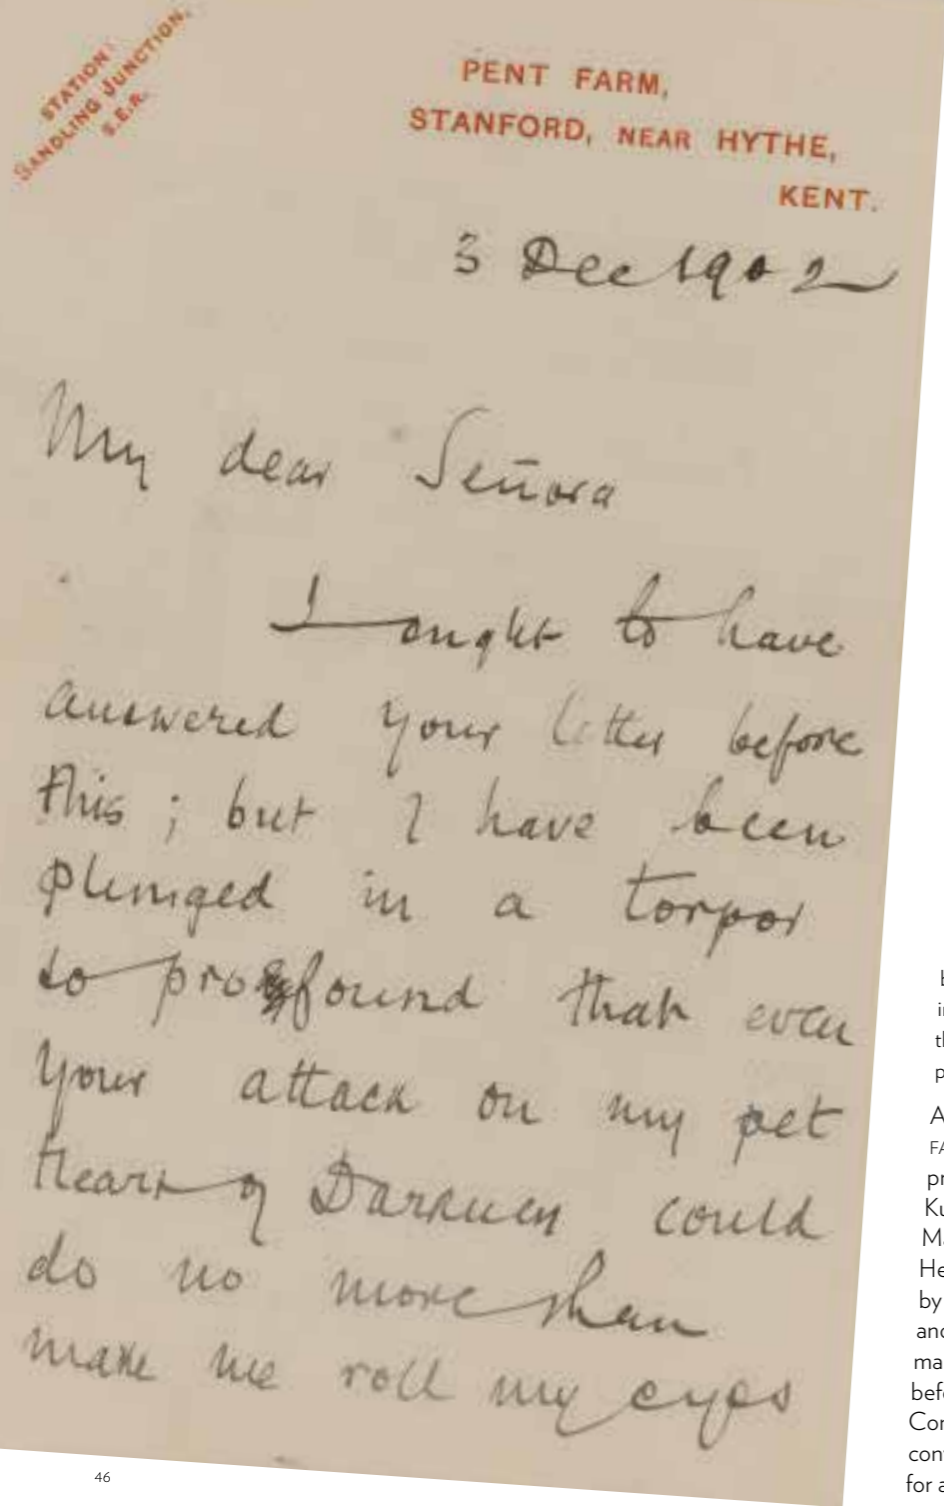 STATION:
SANDLING JUNCTION.
S.E.R.
PENT FARM,
STANFORD, NEAR HYTHE,
KENT.
3 Dec 1902
My dear Señora
I ought to have
answered your letter before
this; but I have been
plunged in a torpor
so profound that even
your attack on my pet
Heart of Darkness could
do no more than
make me roll my eyes
46
b
in
th
p
A
FA
pr
Ku
Ma
He
by
and
ma
befo
Con
cont
for a